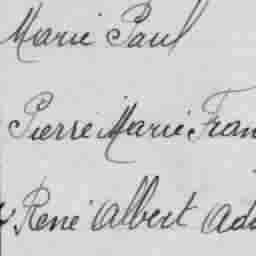 Marie Paul
Pierre Marie Fran
René Albert Ado